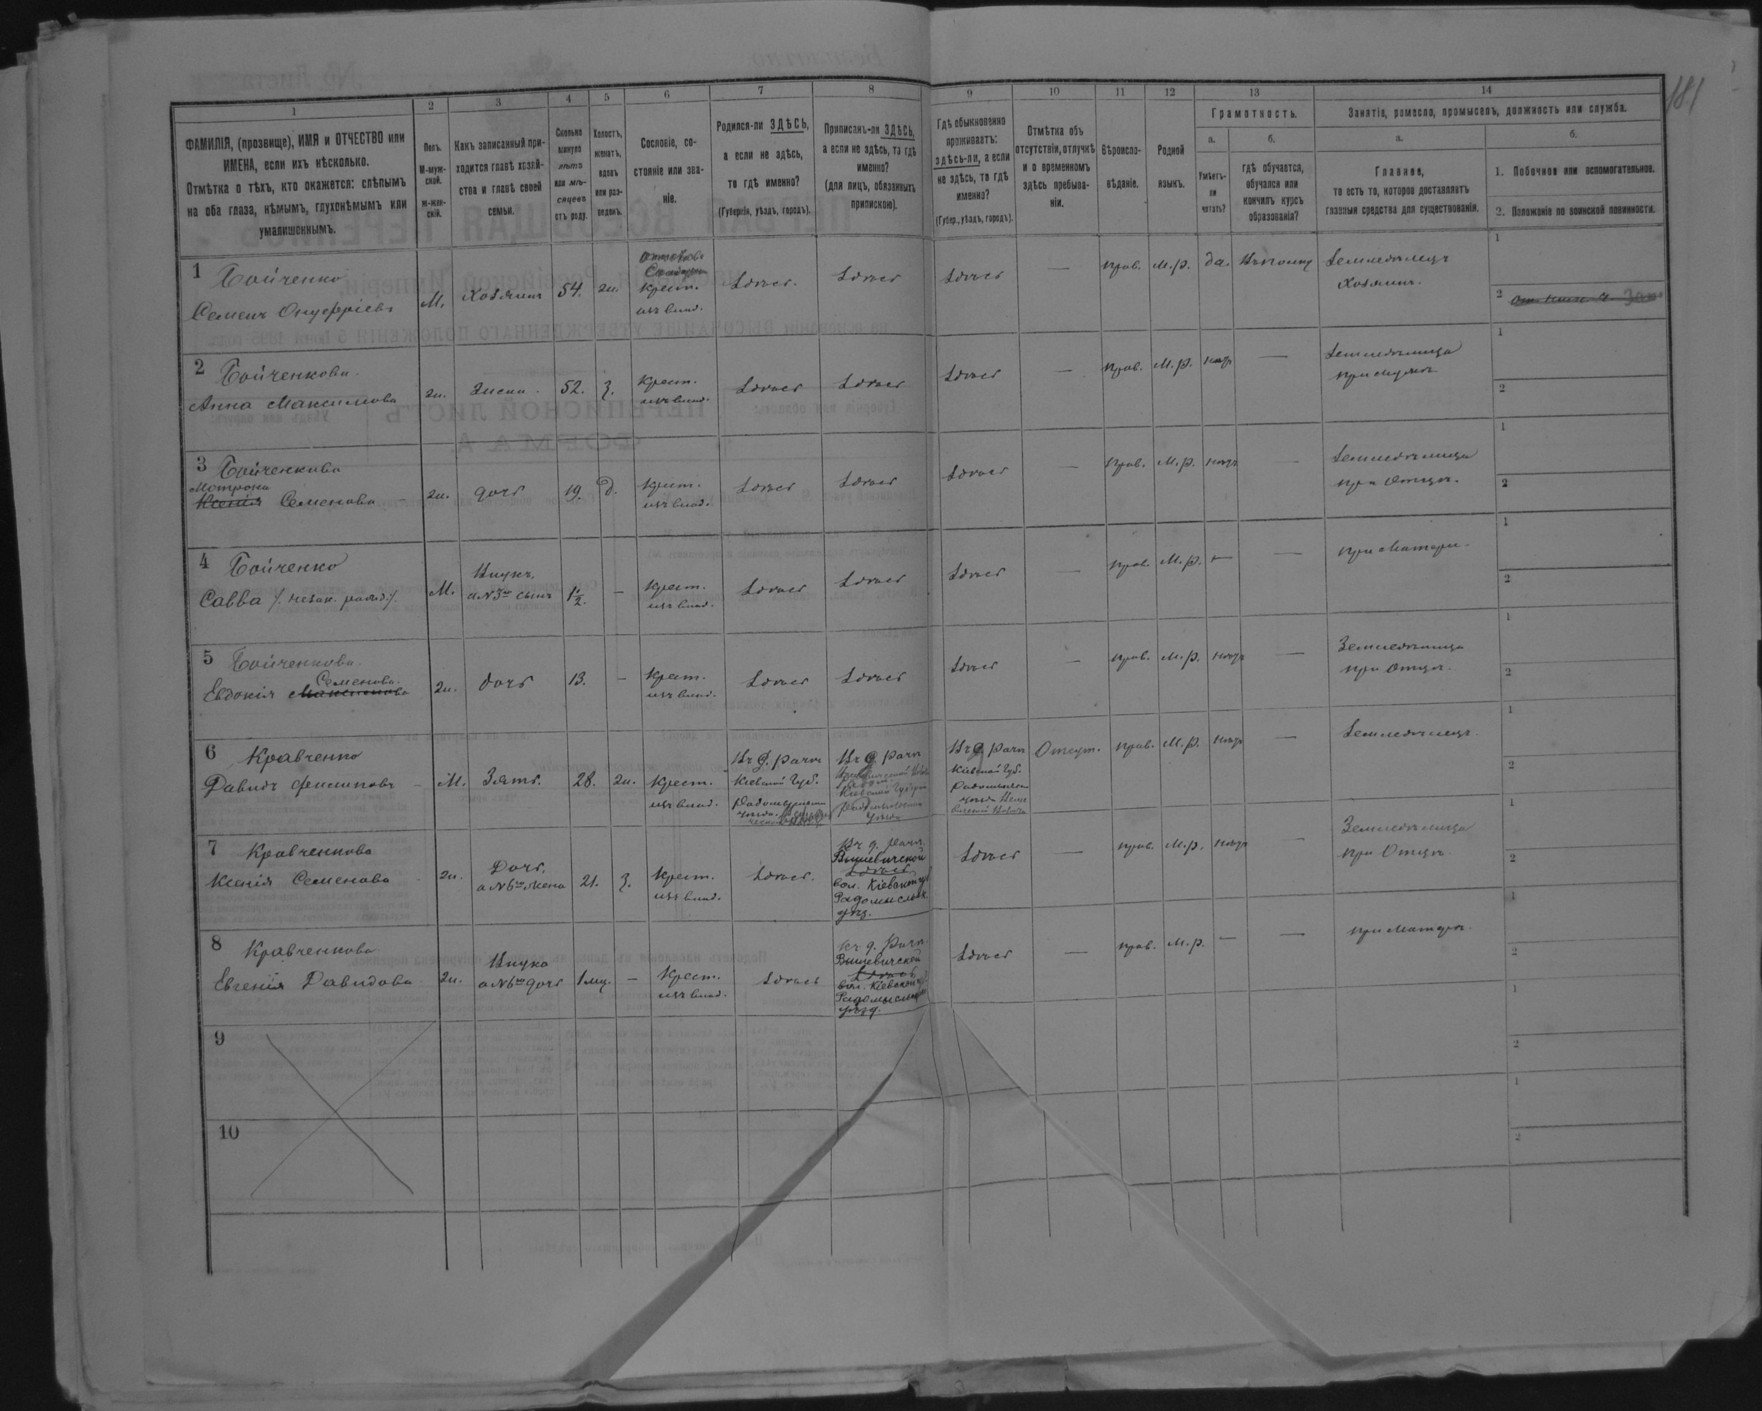 181
1 2 3 4 5 6 7 8 9 10 11 12 13 14
ФАМИЛІЯ, (прозвище), ИМЯ и ОТЧЕСТВО или
ИМЕНА, если ихъ нѣсколько.
Отмѣтка о тѣхъ, кто окажется: слѣпымъ
на оба глаза, нѣмымъ, глухонѣмымъ или
умалишеннымъ.
Полъ.
М-муж-
ской.
ж-жен-
скій.
Какъ записанный при-
ходится главѣ хозяй-
ства и главѣ своей
семьи.
Сколько
минуло
лѣтъ
или мѣ-
сяцевъ
отъ роду.
Холостъ,
женатъ,
вдовъ
или раз-
веденъ.
Сословіе, со-
стояніе или зва-
ніе.
Родился-ли ЗДѢСЬ,
а если не здѣсь,
то гдѣ именно?
(Губернія, уѣздъ, городъ).
Приписанъ-ли ЗДѢСЬ,
а если не здѣсь, то гдѣ
именно?
(для лицъ, обязанныхъ
припискою).
Гдѣ обыкновенно
проживаетъ:
здѣсь-ли, а если
не здѣсь, то гдѣ
именно?
(Губер., уѣздъ, городъ).
Отмѣтка объ
отсутствіи, отлучкѣ
и о временномъ
здѣсь пребыва-
ніи.
Вѣроиспо-
вѣданіе.
Родной
языкъ.
Грамотность.
а.
Умѣетъ-
ли
читать?
б.
гдѣ обучается,
обучался или
кончилъ курсъ
образованія?
Занятіе, ремесло, промыселъ, должность или служба.
а.
Главное,
то есть то, которое доставляетъ
главныя средства для существованія.
б.
1. Побочное или вспомогательное.
2. Положеніе по воинской повинности.
1 Бойченко
Семенъ Онуфріевъ
М. Хозяинъ 54. ж. Крест.
изъ влад.
Здѣсь. Здѣсь Здѣсь — прав. М.р. да. Земледѣлецъ
Хозяинъ.
1
2
2 Бойченкова
Анна Максимова
ж. Жена 52. з. Крест.
изъ влад.
Здѣсь Здѣсь Здѣсь — прав. М.р. нѣтъ — Земледѣлица
при мужѣ
1
2
3 Бойченкова
Мотрона
Ксенія Семенова
ж. дочь 19. д. Крест.
изъ влад.
Здѣсь Здѣсь Здѣсь — прав. М.р. нѣтъ — Земледѣлица
при Отцѣ.
1
2
4 Бойченко
Савва /. незак. рожд./.
М. Внукъ,
а №3го сынъ 1½. — Крест.
изъ влад.
Здѣсь Здѣсь Здѣсь — прав. М.р. — — при Матери
1
2
5 Бойченкова
Семенова.
Евдокія Максимова
ж. дочь 13. — Крест.
изъ влад.
Здѣсь Здѣсь Здѣсь — прав. М.р. нѣтъ — Земледѣлица
при Отцѣ.
1
2
6 Кравченко
Давидъ Филиповъ
М. Зять. 28. ж. Крест.
изъ влад.
Въ д. Рачи
Кіевской Губ.
Въ д. Рачи
Кіевской Губерн
Радомысльскаго
уѣзда
Въ д. Рачи
Кіевской Губ.
Отсут. прав. М.р. нѣтъ — Земледѣлецъ
1
2
7 Кравченкова
Ксенія Семенова
ж. Дочь,
а №6го жена 21. з. Крест.
изъ влад.
Здѣсь. Въ д. Рачи
Вышевичской
Здѣсь
вол. Кіевской губ
Радомысльск
уѣзд.
Здѣсь — прав. М.р. нѣтъ — Земледѣлица
при Отцѣ.
1
2
8 Кравченкова
Евгенія Давидова
ж. Внука
а №6го дочь 1 мц. — Крест.
изъ влад.
Здѣсь Въ д. Рачи
Вышевичской
Здѣсь
вол. Кіевской губ
Радомысльск
уѣзд.
Здѣсь — прав. М.р. — — при Матери.
1
2
9
1
2
10
1
2